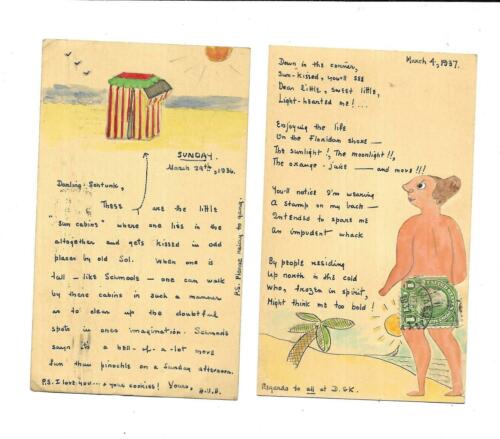 SUNDAY.
March 29th, 1936.
Darling
These are the little
"sun cabins" where one lies in the
altogether and gets kissed in odd
places by old Sol. When one is
tall - like Schmools - one can walk
by these cabins in such a manner
as to clear up the doubtful
spots in ones imagination. Schmools
says it's a hell-of-a-lot more
fun than pinochle on a Sunday afternoon.
P.S. I love you... & your cookies! Yours,
P.S. Please
March 4, 1937.
Down in the corner,
Sun-kissed, you'll see
Dear little, sweet little,
Light-hearted me! ...
Enjoying the life
On the Floridan shore —
The sunlight!, The moonlight!!,
The orange-juice — and more!!!
You'll notice I'm wearing
A stamp on my back —
Intended to spare me
An impudent whack
By people residing
Up north in the cold
Who, frozen in spirit,
Might think me too bold!
Regards to all at D.G.K.